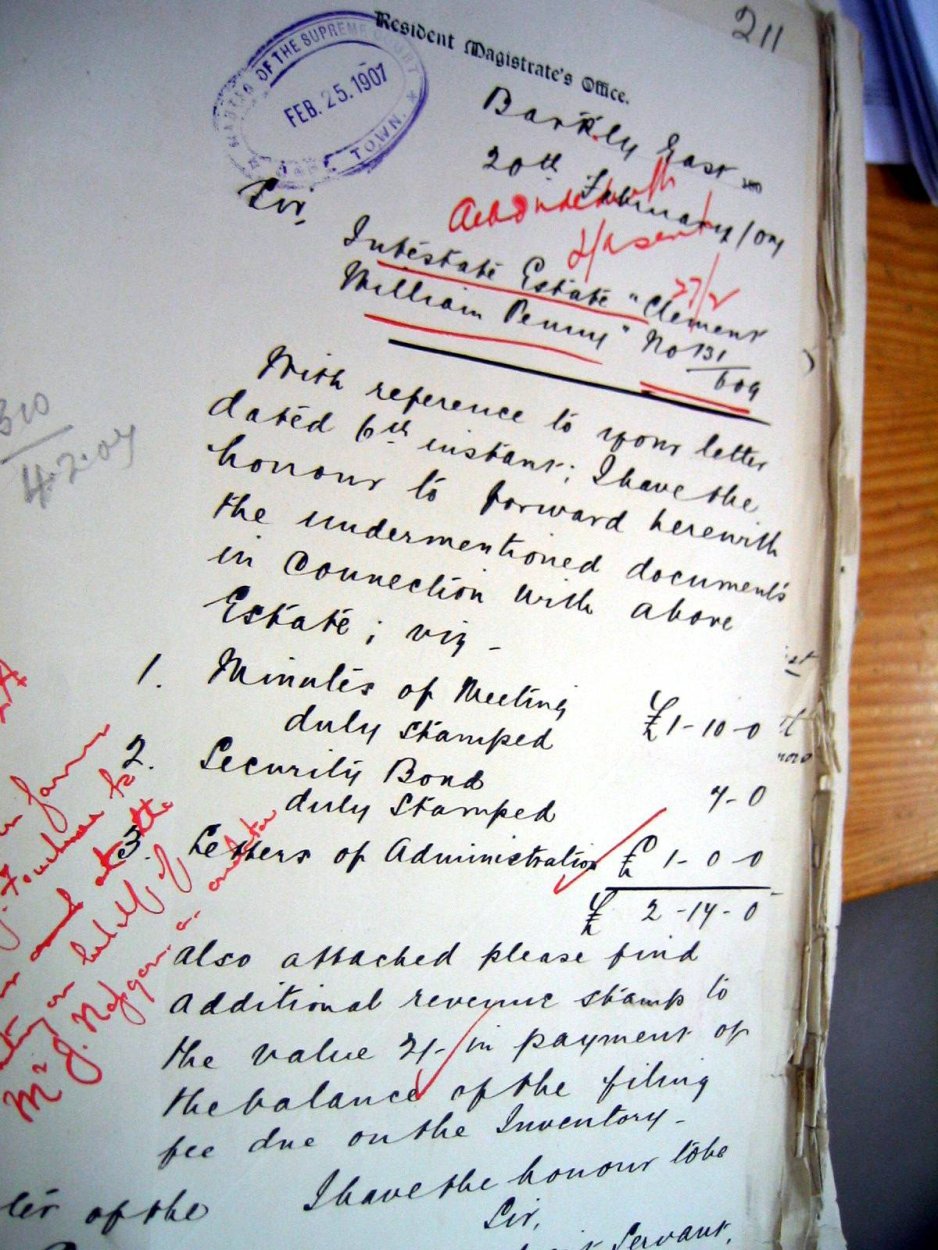 211
Resident Magistrate's Office.
MASTER OF THE SUPREME COURT
FEB. 25. 1907
CAPE TOWN.
Barkly East
20th February/07
Sir,
27/2
Intestate Estate "Clement
William Penny" No 131/609
310
4.2.07
With reference to your letter
dated 6th instant; I have the
honour to forward herewith
the undermentioned documents
in connection with above
Estate; viz -
1. Minutes of Meeting
duly stamped £1-10-0
2. Security Bond
duly stamped 4-0
3. Letters of Administration £ 1-0-0
£ 2-14-0
also attached please find
additional revenue stamp to
the value 2/- in payment of
the balance of the filing
fee due on the Inventory -
I have the honour to be
Sir,
Servant,
of the
on behalf of